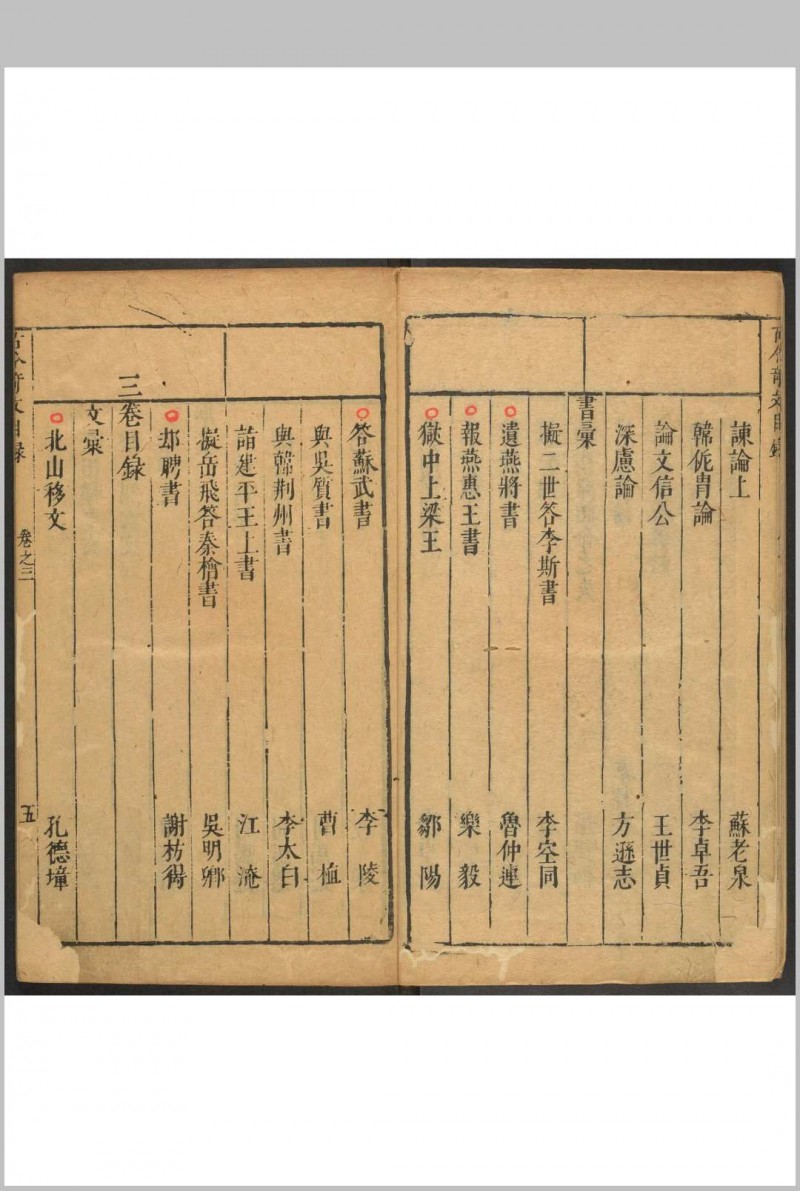 諫論上 蘇老泉
韓侂胄論 李卓吾
論文信公 王世貞
深慮論 方遜志
書彙
擬二世答李斯書 李空同
遺燕將書 魯仲連
報燕惠王書 樂毅
獄中上梁王 鄒陽
答蘇武書 李陵
與吳質書 曹植
與韓荆州書 李太白
詣建平王上書 江淹
擬岳飛答秦檜書 吳明卿
却聘書 謝枋得
三卷目録
文彙
北山移文 孔德璋
卷之三
五